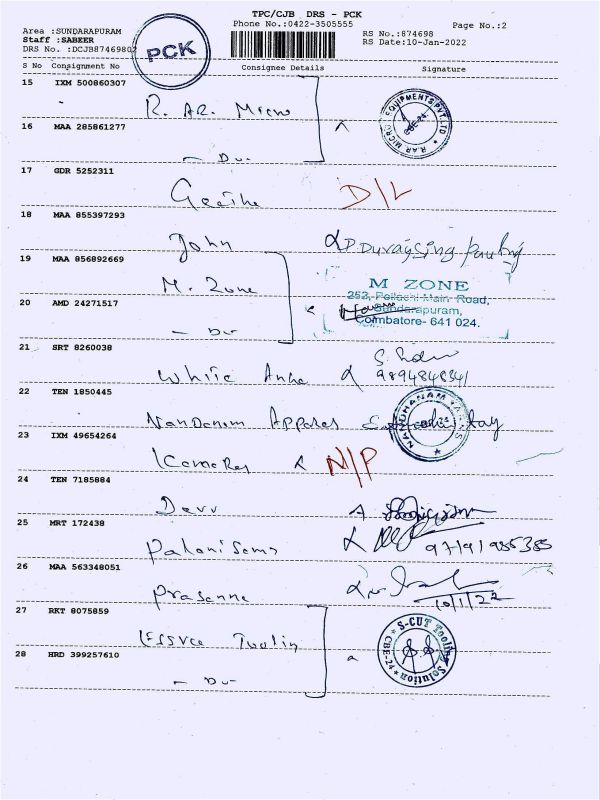 TPC/CJB DRS - PCK
Phone No.:0422-3505555
Page No.:2
Area :SUNDARAPURAM
Staff :SABEER
DRS No. :DCJB87469802
PCK
RS No.:874698
RS Date:10-Jan-2022
S No Consignment No Consignee Details Signature
15 IXM 500860307
R. AR. Micro
EQUIPMENTS PVT. LTD * R.AR MICRO
CBE-24.
16 MAA 285861277
- Do -
17 GDR 5252311
D/L
18 MAA 855397293
John
19 MAA 856892669
M. Zone
M ZONE
253, Pollachi Main Road,
Sundarapuram,
Coimbatore- 641 024.
20 AMD 24271517
- Do -
21 SRT 8260038
White
9894848341
22 TEN 1850445
Nandanam Apparels
23 IXM 49654264
N/P
24 TEN 7185884
Devv
25 MRT 172438
Palanisamy
9791985385
26 MAA 563348051
Prasanna
10/1/22
27 RKT 8075859
S-CUT Tooling Solution * CBE-24 *
28 HRD 399257610
- Do -